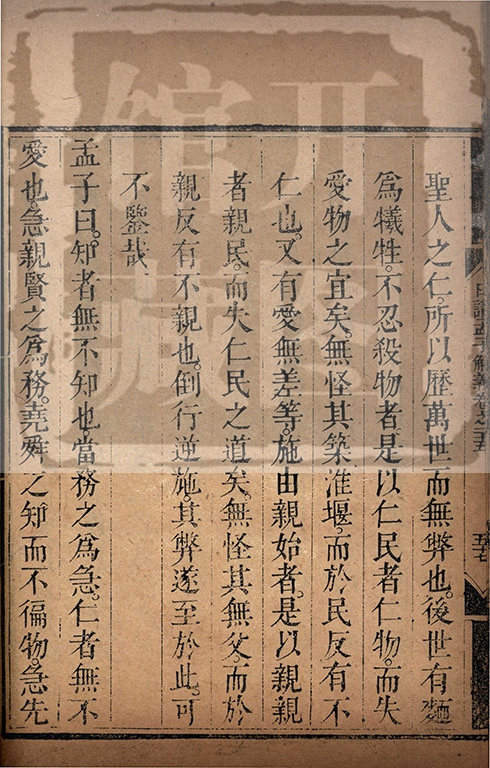 聖人之仁。所以歷萬世而無弊也。後世有麵
爲犧牲。不忍殺物者。是以仁民者仁物。而失
愛物之宜矣。無怪其築淮堰。而於民反有不
仁也。又有愛無差等。施由親始者。是以親親
者親民。而失仁民之道矣。無怪其無父。而於
親反有不親也。倒行逆施。其弊遂至於此。可
不鑒哉
孟子曰。知者無不知也。當務之爲急。仁者無不
愛也。急親賢之爲務。堯舜之知而不徧物。急先
日講孟子解義卷之二十五
五十七
開
館
圖
藏